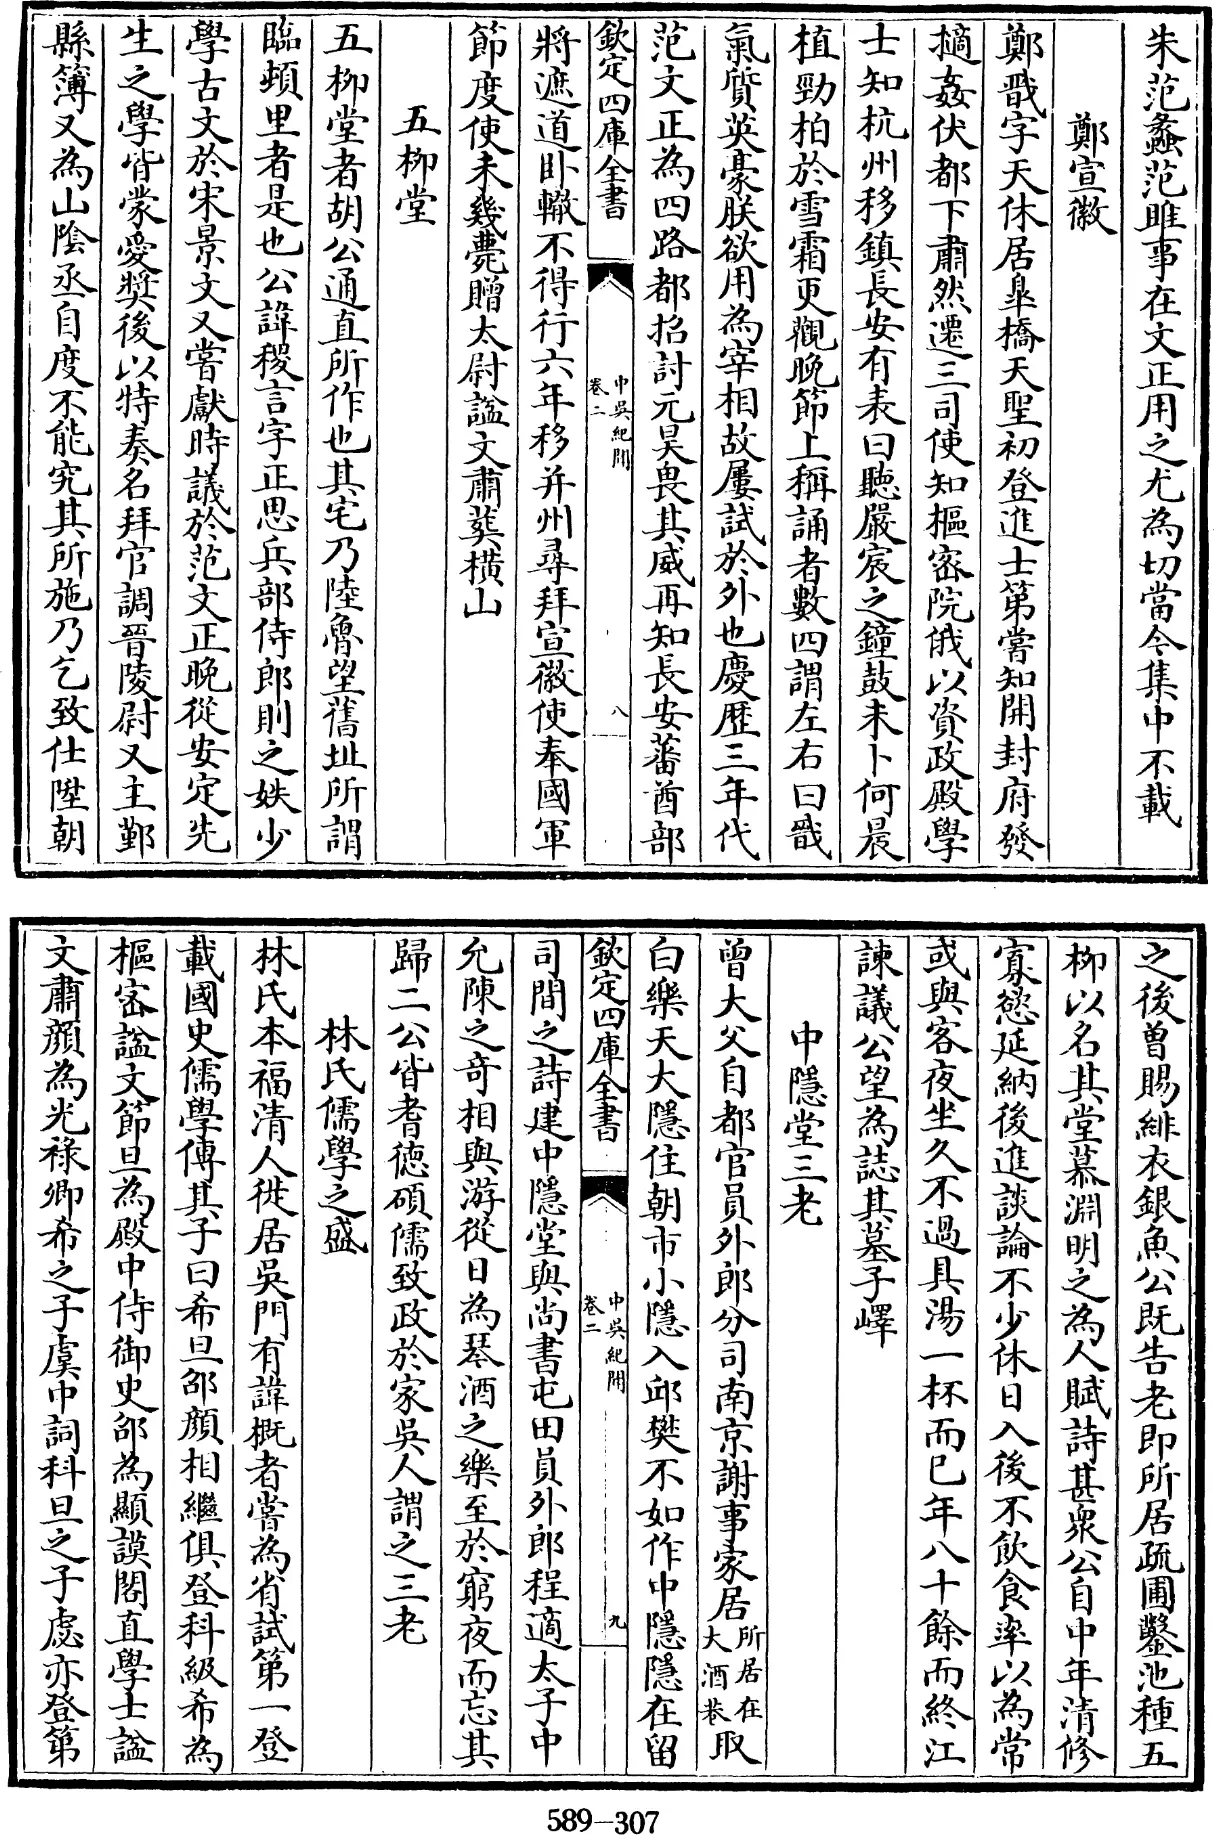 朱范蠡范雎事在文正用之尤為切當今集中不載
鄭宣徽
鄭戩字天休居臯橋天聖初登進士第嘗知開封府發
擿姦伏都下肅然遷三司使知樞密院俄以資政殿學
士知杭州移鎮長安有表曰聽嚴宸之鐘鼓未卜何晨
植勁柏於雪霜更觀晚節上稱誦者數四謂左右曰戩
氣質英豪朕欲用為宰相故屢試於外也慶歴三年代
范文正為四路都招討元昊畏其威再知長安蕃酋部
欽定四庫全書
中吳紀聞
卷二
八
將遮道卧轍不得行六年移并州尋拜宣徽使奉國軍
節度使未幾薨贈太尉諡文肅葬橫山
五栁堂
五栁堂者胡公通直所作也其宅乃陸魯望舊址所謂
臨頓里者是也公諱稷言字正思兵部侍郎則之姪少
學古文於宋景文又嘗獻時議於范文正晚從安定先
生之學皆蒙愛奬後以特奏名拜官調晉陵尉又主鄞
縣簿又為山隂丞自度不能究其所施乃乞致仕陞朝
之後曽賜緋衣銀魚公既告老即所居疏圃鑿池種五
栁以名其堂慕淵明之為人賦詩甚衆公自中年清修
寡慾延納後進談論不少休日入後不飲食率以為常
或與客夜坐久不過具湯一杯而已年八十餘而終江
諫議公望為誌其墓子嶧
中隱堂三老
曾大父自都官員外郎分司南京謝事家居所居在大酒巷取
白樂天大隱住朝市小隱入邱樊不如作中隱隱在留
欽定四庫全書
中吳紀聞
卷二
九
司間之詩建中隱堂與尚書屯田員外郎程適太子中
允陳之奇相與游從日為琴酒之樂至於窮夜而忘其
歸二公皆耆德碩儒致政於家吳人謂之三老
林氏儒學之盛
林氏本福清人徙居吳門有諱概者嘗為省試第一登
載國史儒學傳其子曰希旦邵顔相繼俱登科級希為
樞密諡文節旦為殿中侍御史邵為顯謨閣直學士諡
文肅顔為光祿卿希之子虞中詞科旦之子虙亦登第
589-307